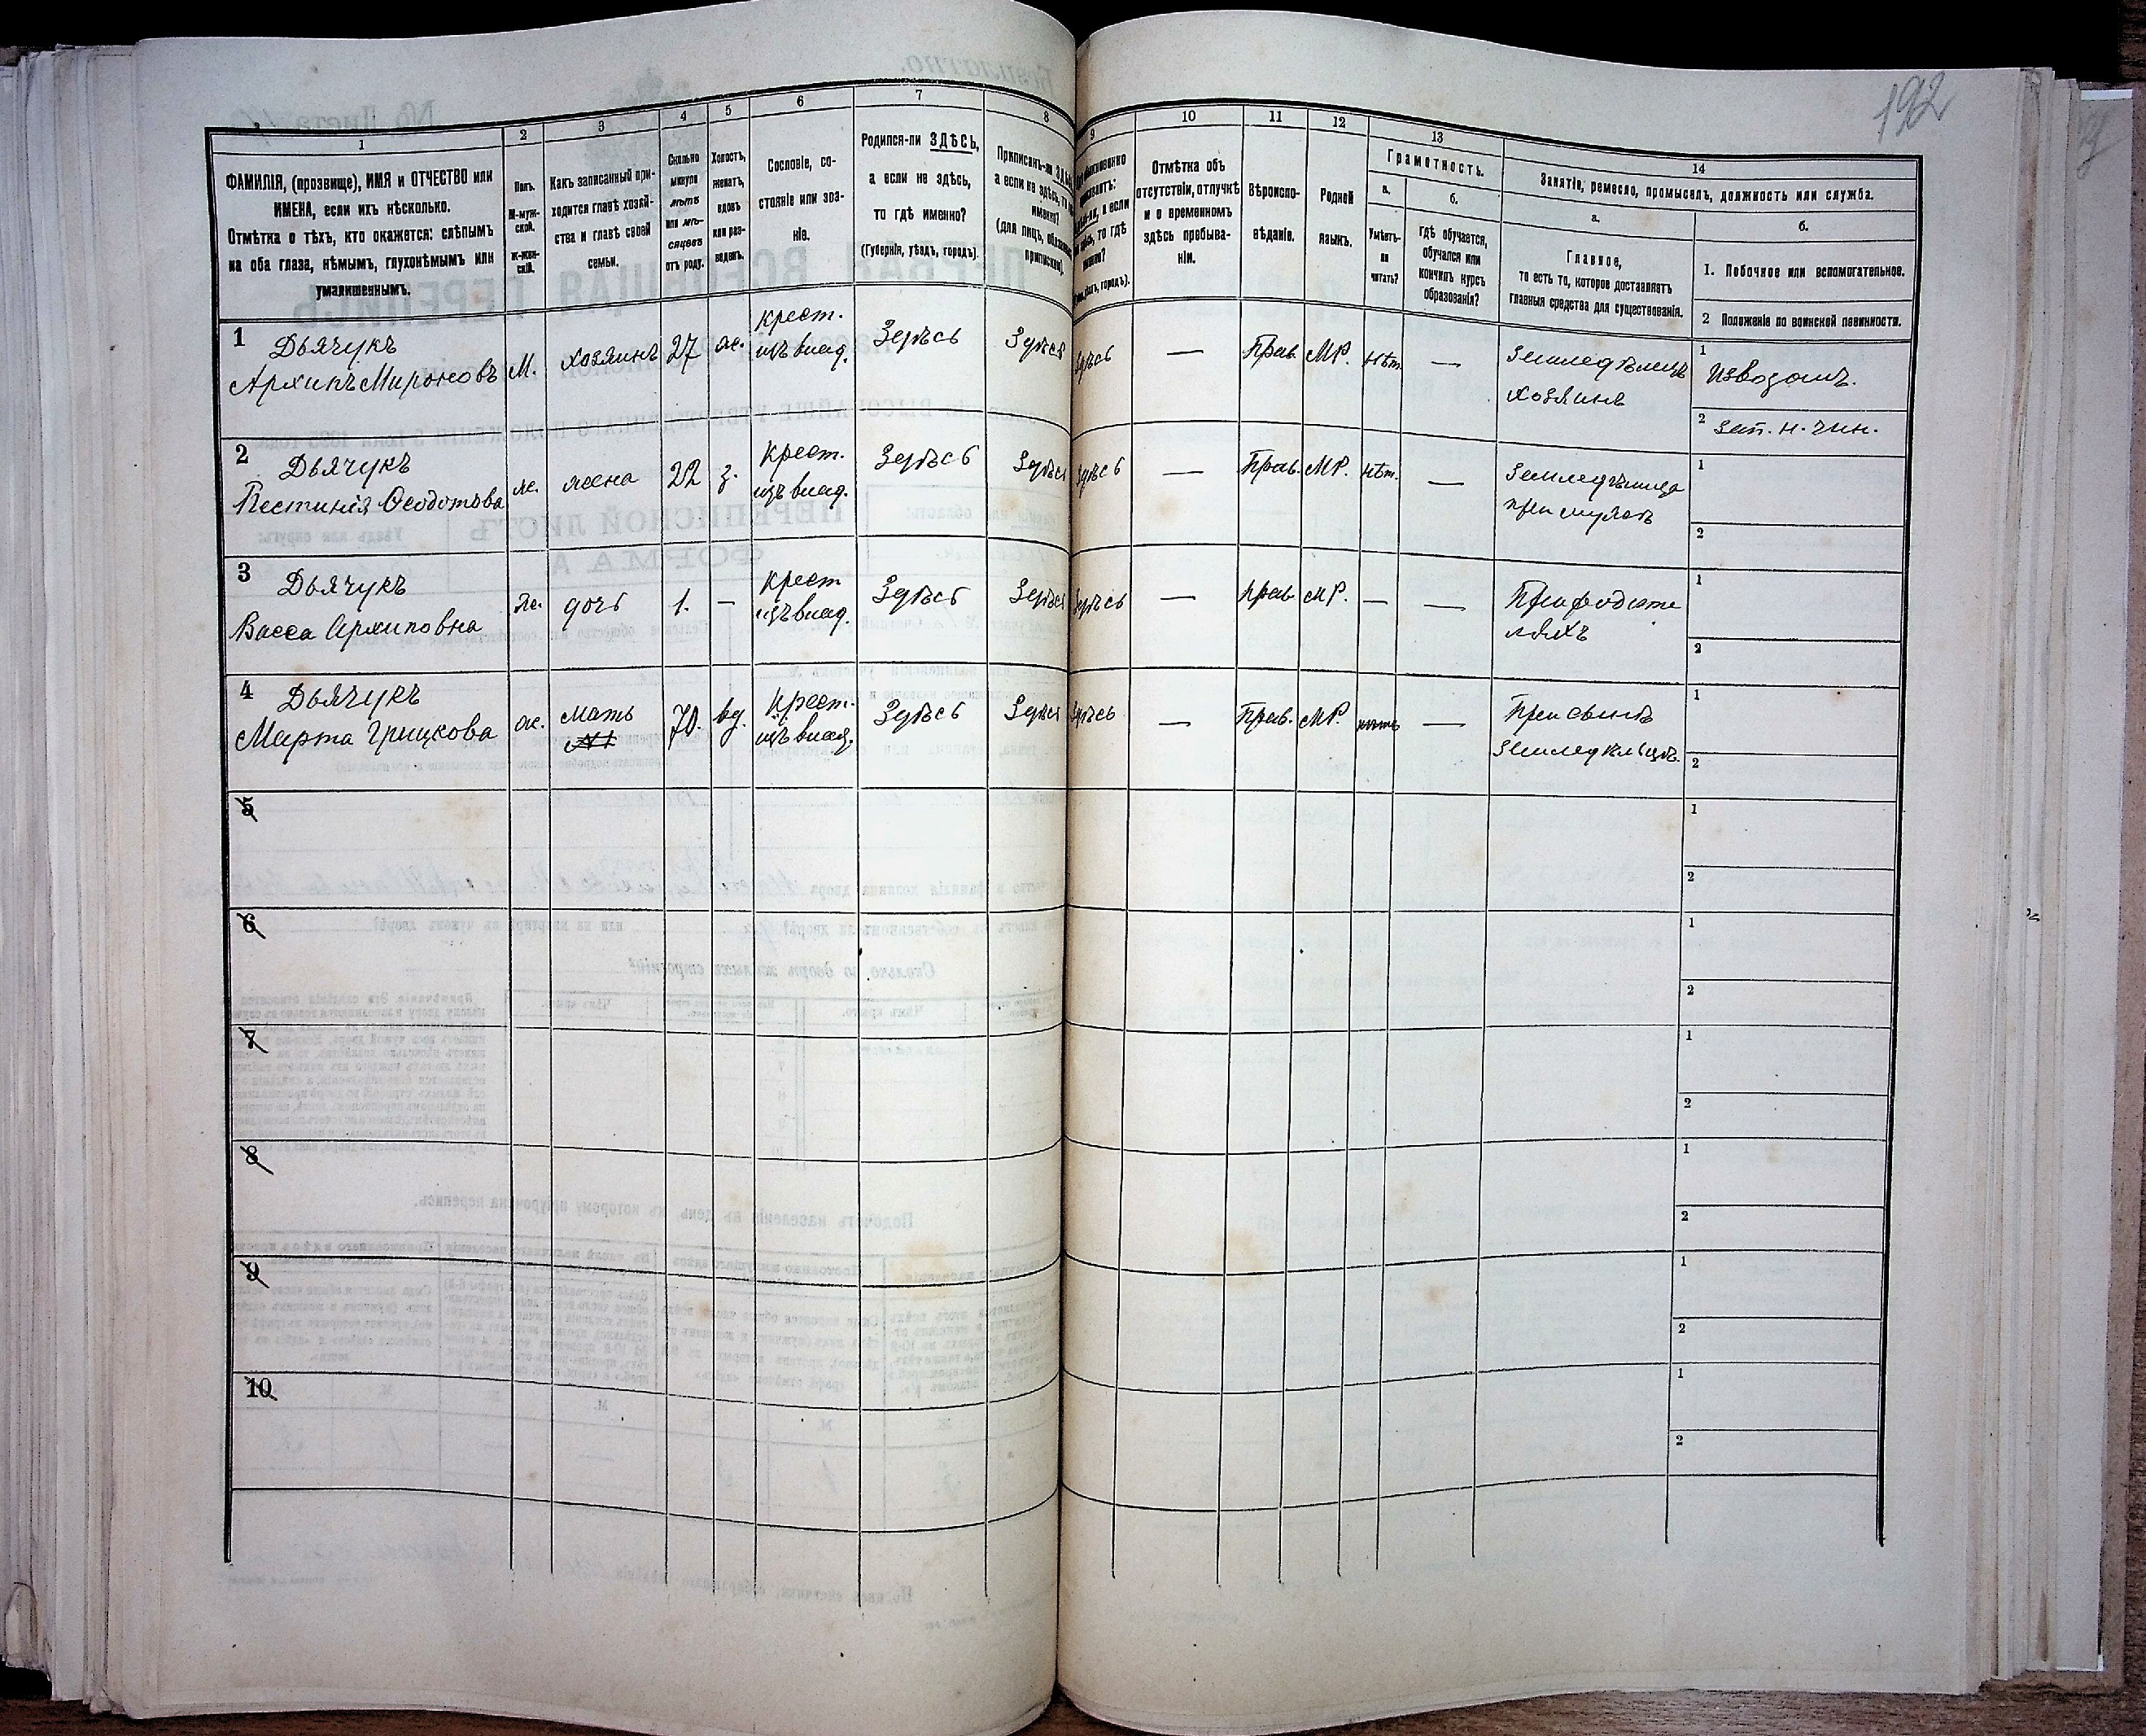 192
1
2
3
4
5
6
7
8
9
10
11
12
13
14
ФАМИЛІЯ, (прозвище), ИМЯ и ОТЧЕСТВО или
ИМЕНА, если ихъ нѣсколько.
Отмѣтка о тѣхъ, кто окажется: слѣпымъ
на оба глаза, нѣмымъ, глухонѣмымъ или
умалишеннымъ.
Полъ.
М-муж-
ской.
Ж-жен-
скій.
Какъ записанный при-
ходится главѣ хозяй-
ства и главѣ своей
семьи.
Сколько
минуло
лѣтъ
или мѣ-
сяцевъ
отъ роду.
Холостъ,
женатъ,
вдовъ
или раз-
веденъ.
Сословіе, со-
стояніе или зва-
ніе.
Родился-ли ЗДѢСЬ,
а если не здѣсь,
то гдѣ именно?
(Губернія, уѣздъ, городъ).
Приписанъ-ли
а если не здѣсь,
именно?
(для лицъ,
Отмѣтка объ
отсутствіи, отлучкѣ
и о временномъ
здѣсь пребыва-
ніи.
Вѣроиспо-
вѣданіе.
Родной
языкъ.
Грамотность.
а.
б.
Умѣетъ-
ли
читать?
гдѣ обучается,
обучался или
кончилъ курсъ
образованія?
Занятіе, ремесло, промыселъ, должность или служба.
а.
б.
Главное,
то есть то, которое доставляетъ
главныя средства для существованія.
1. Побочное или вспомогательное.
2 Положеніе по воинской повинности.
1 Дьячукъ
Архипъ Мироновъ М. хозяинъ 27 ж. крест. изъ влад. Здѣсь Здѣсь Здѣсь — Прав. МР. нѣт. — Земледѣлецъ хозяинъ
1 Извозомъ.
2 Зап. н. чин.
2 Дьячукъ
Пестинія Ѳеодотова ж. жена 22 з. Крест. изъ влад. Здѣсь Здѣсь Здѣсь — Прав. МР. нѣт. —
1
2
3 Дьячукъ
Васса Архиповна ж. дочь 1. — Крест изъ влад. Здѣсь Здѣсь Здѣсь — прав МР. — —
1
2
4 Дьячукъ
Марта Грицкова ж. мать N1 70. вд. Крест. изъ влад. Здѣсь Здѣсь Здѣсь — Прав. МР. нѣтъ —
1
2
5
1
2
6
1
2
7
1
2
8
1
2
9
1
2
10
1
2